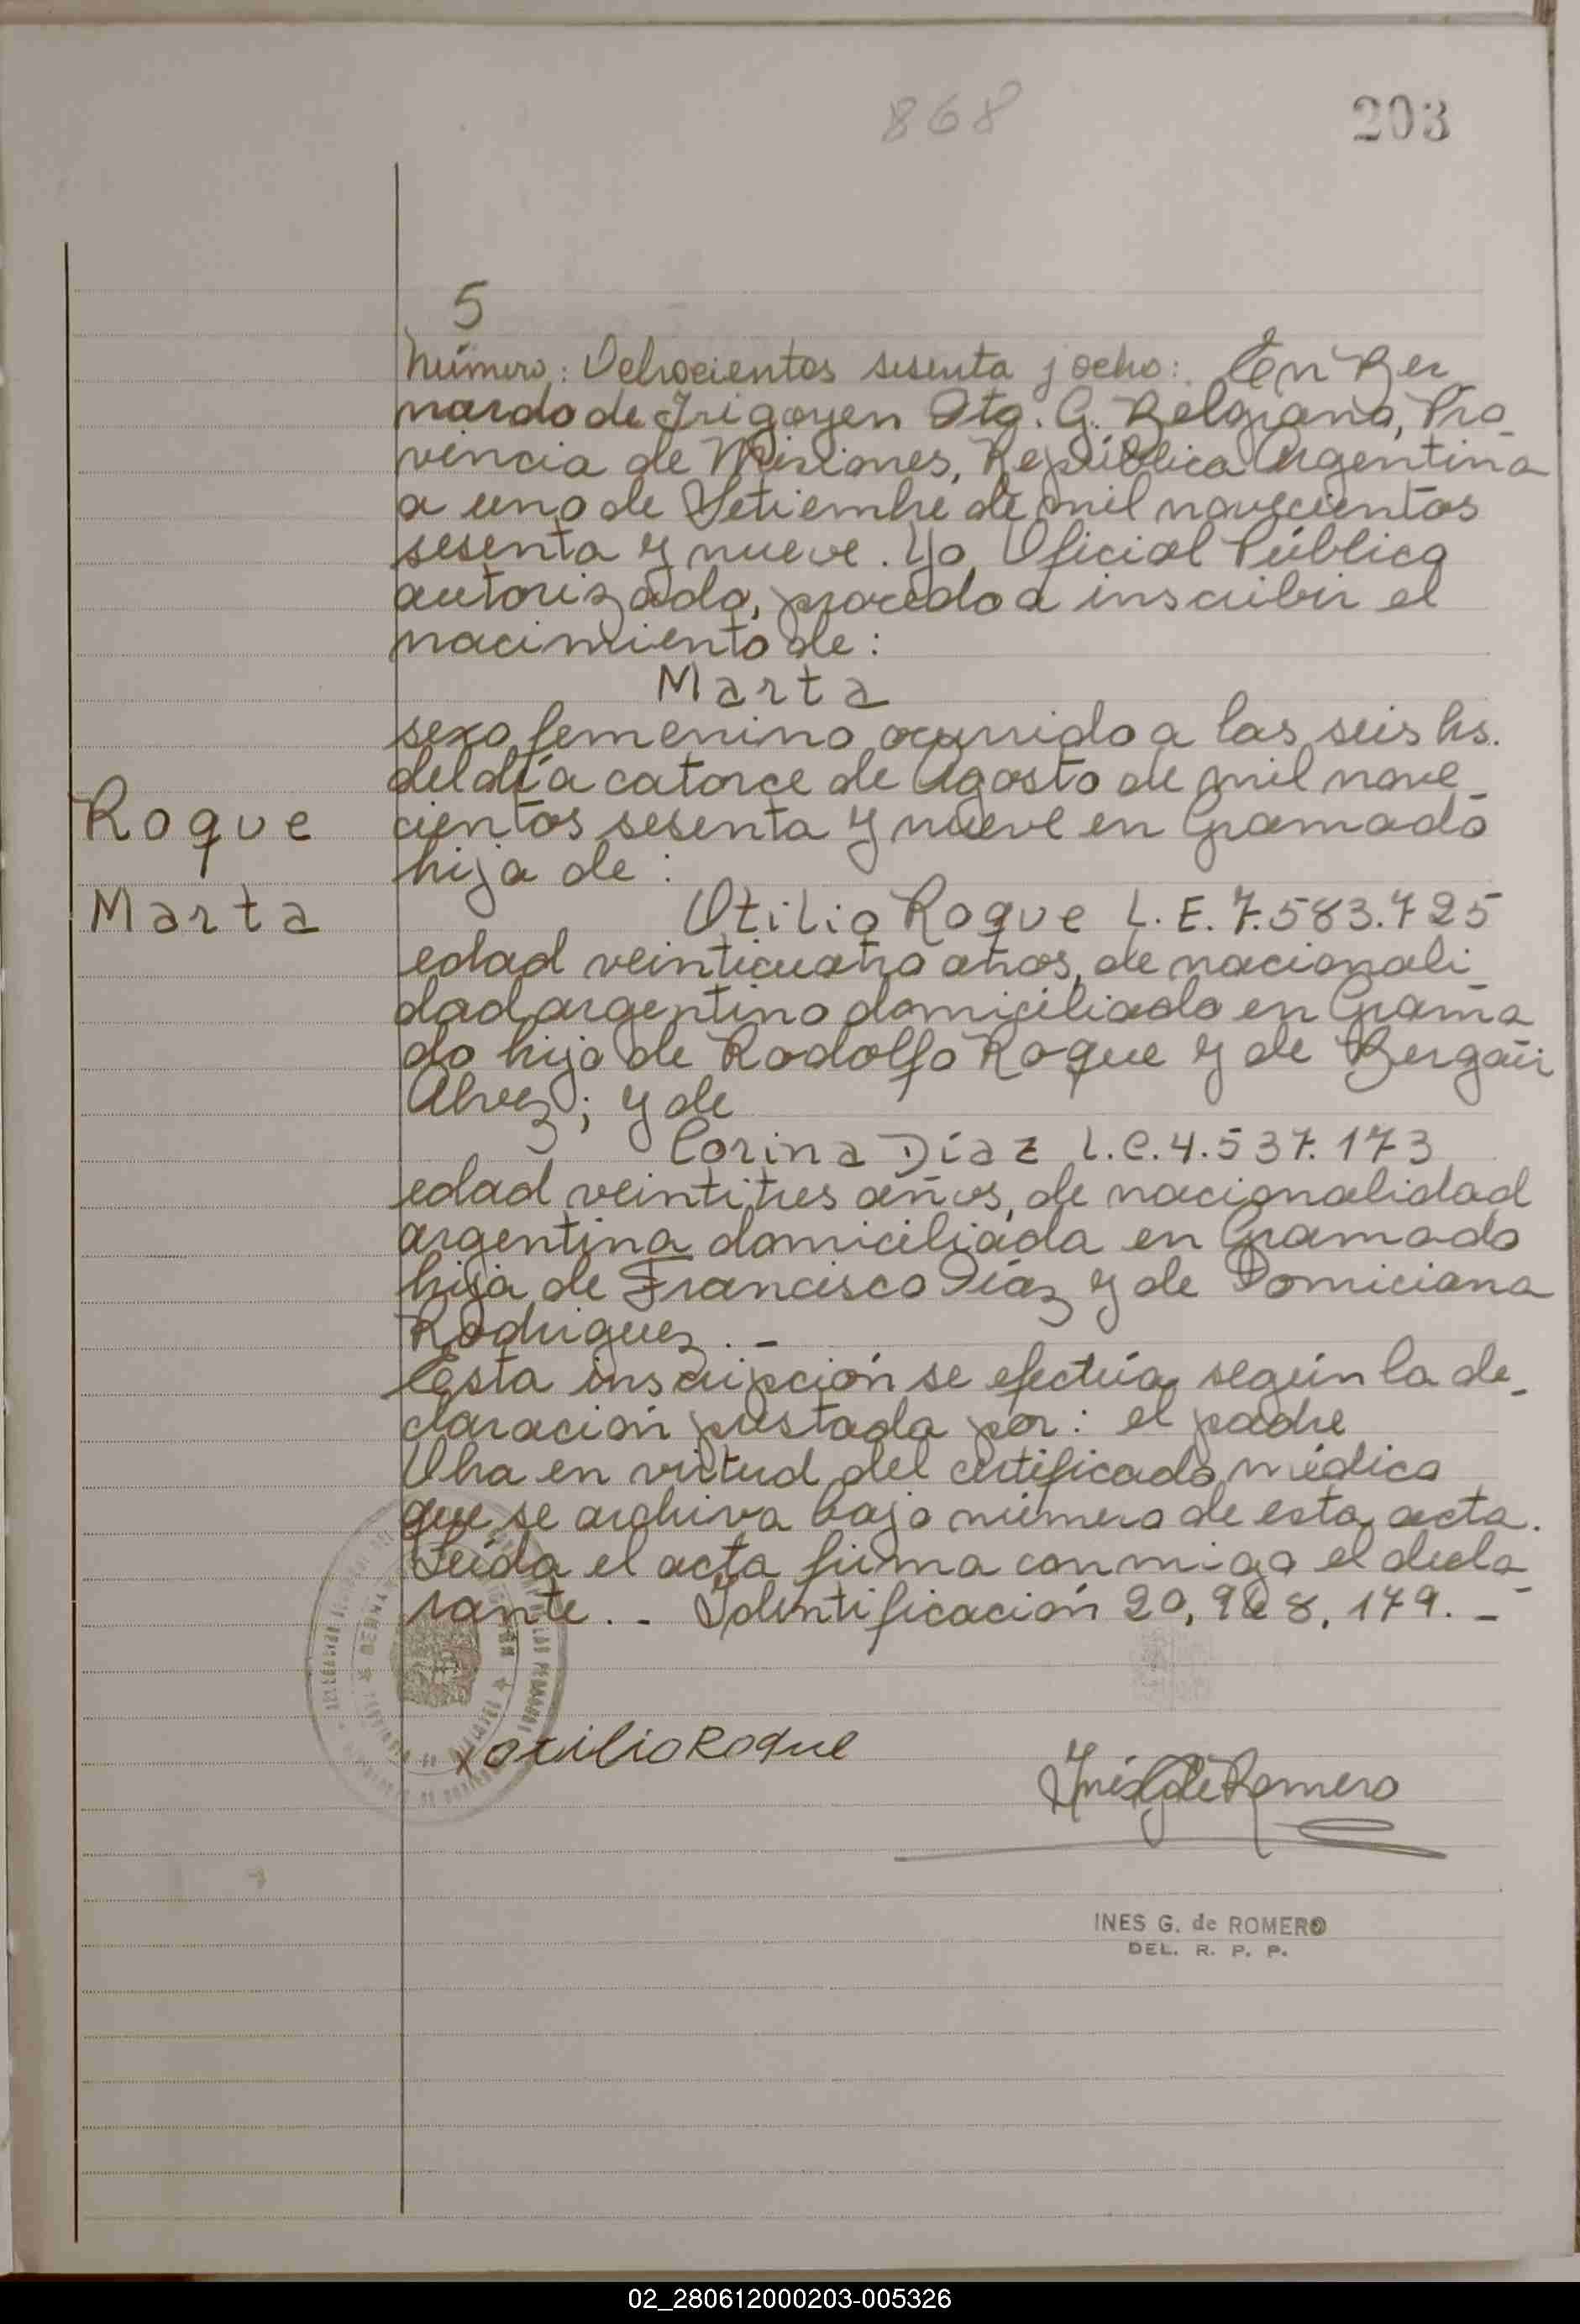 868
203
5
Número: Ochocientos sesenta y ocho: En Ber
nardo de Irigoyen Dto. G. Belgrano, Pro_
vincia de Misiones, República Argentina
a uno de Setiembre de mil novecientos
sesenta y nueve. Yo, Oficial Público
autorizado, procedo a inscribir el
nacimiento de:
Marta
sexo femenino ocurrido a las seis hs.
del día catorce de Agosto de mil nove_
Roque
cientos sesenta y nueve en Gramado
hija de:
Marta
Otilio Roque L.E. 7.583.725
edad veinticuatro años, de nacionali_
dad argentino domiciliado en Grama_
do hijo de Rodolfo Roque y de
Alvez; y de
Corina Díaz L.C. 4.537.173
edad veintitres años, de nacionalidad
argentina domiciliada en Gramado
hija de Francisco Díaz y de Domiciana
Rodriguez._
Esta inscripción se efectúa según la de_
claración prestada por: el padre
Obra en virtud del certificado médico
que se archiva bajo número de esta acta.
Leída el acta firma conmigo el decla_
rante._ Identificación 179._
x Otilio Roque
Inés G de Romero
INES G. de ROMERO
DEL. R. P. P.
02_280612000203-005326